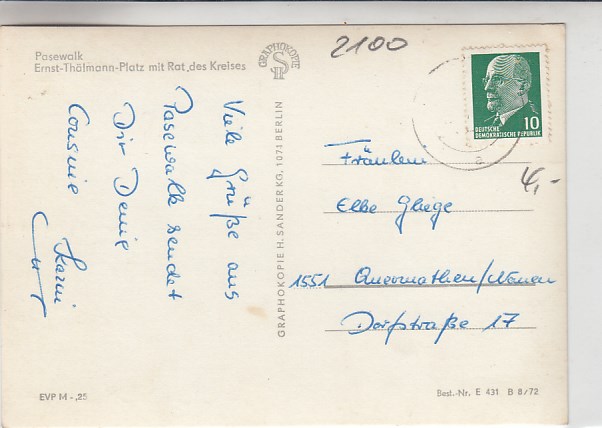 Pasewalk
Ernst-Thälmann-Platz mit Rat des Kreises
GRAPHOKOPIE
2100
10
DEUTSCHE
DEMOKRATISCHE REPUBLIK
Viele Grüße aus
Pasewalk sendet
Dir Deine
Cousine Karin
GRAPHOKOPIE H. SANDER KG, 1071 BERLIN
4,-
Fräulein
Elke Gliege
1551
Dorfstraße 17
EVP M -,25
Best.-Nr. E 431 B 8/72